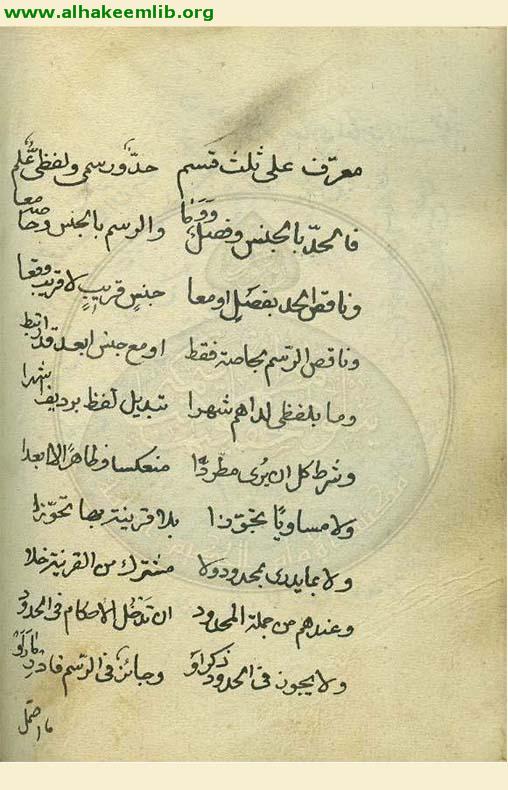 www.alhakeemlib.org
معرّف على ثلث قسم حدّ ورسمي ولفظي عُلم
فالحدّ بالجنس وفصل وقعا والرسم بالجنس وخاصّة معا
وناقص الحد بفصل او معا جنس قريب لا قريب وقعا
وناقص الرسم بخاصة فقط او مع جنس ابعد قد ارتبط
وما بلفظي لداهم شهرا تبديل لفظ برديف اشهرا
وشرط كل ان يُرى مطّردًا منعكسا وظاهرا لا ابعدا
ولا مساويًا تجوّزا بلا قرينة بها تحوّزا
ولا بما يدرى بمحدود ولا مشترك من القرينة خلا
وعندهم من جملة المحدود ان تدخل الاحكام في الحدود
ولا يجوز في الحدود ذكر او وجائز في الرّسم فادر